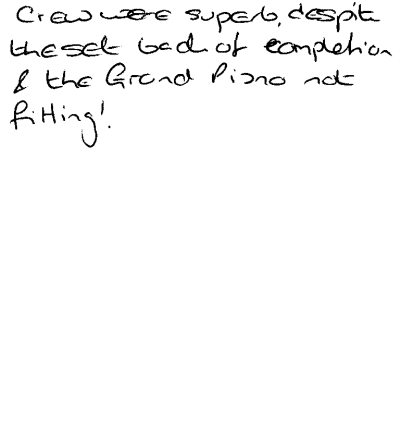 Crew were superb, despite
the set back of completion
& the Grand Piano not
fitting!